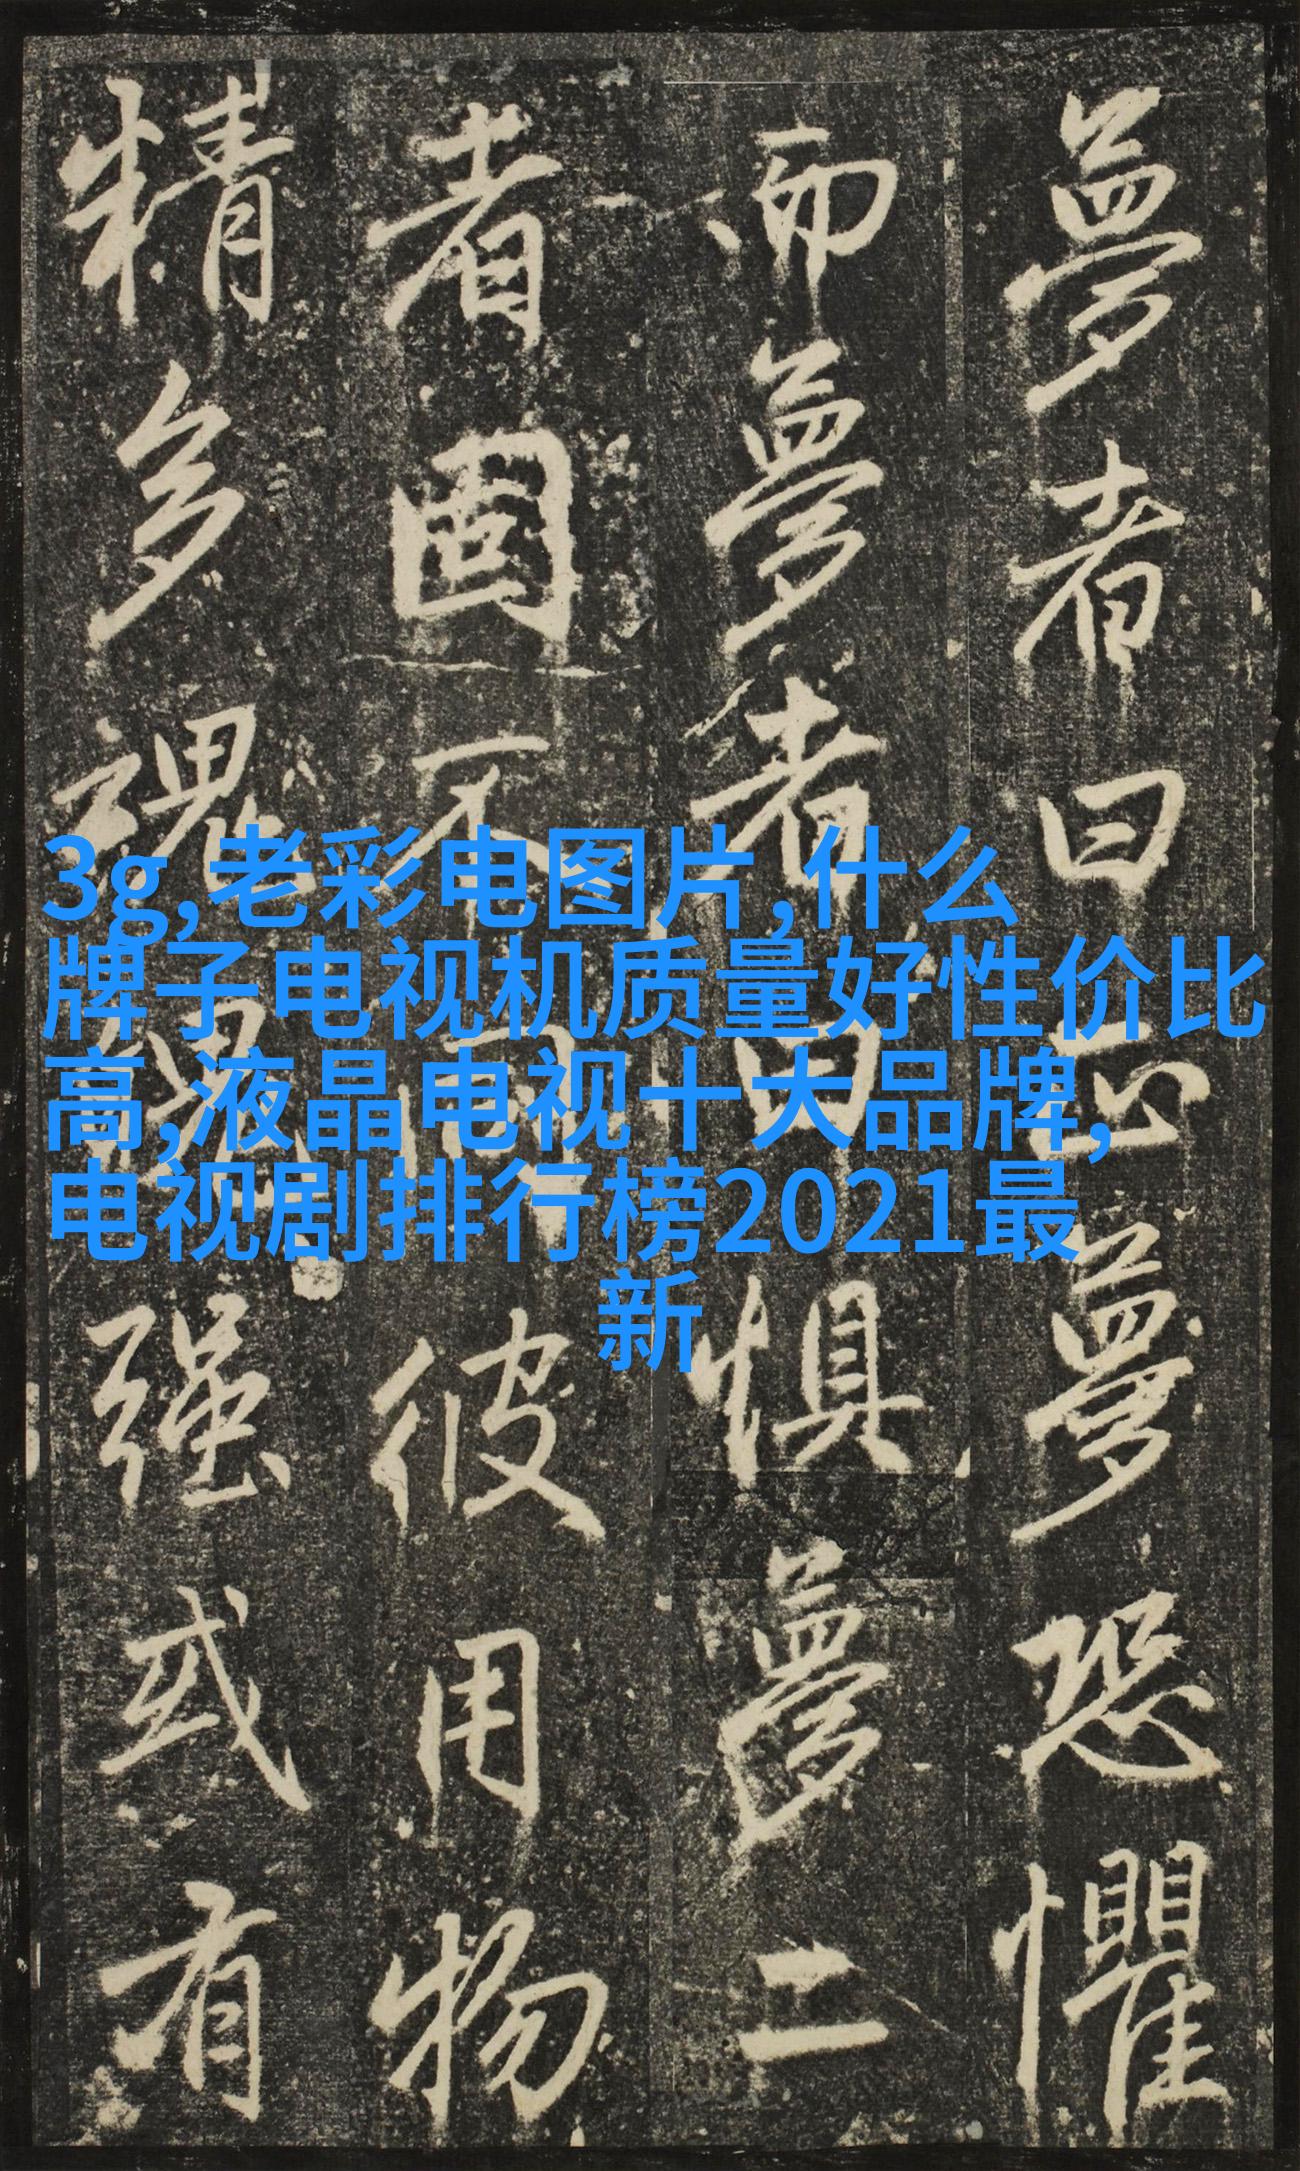 夢者曰正夢恐懼
而夢者曰惧夢二
者固不同彼用物
精多魂魄强或有
3g,老彩电图片,什么
牌子电视机质量好性价比
高,液晶电视十大品牌,
电视剧排行榜2021最
新